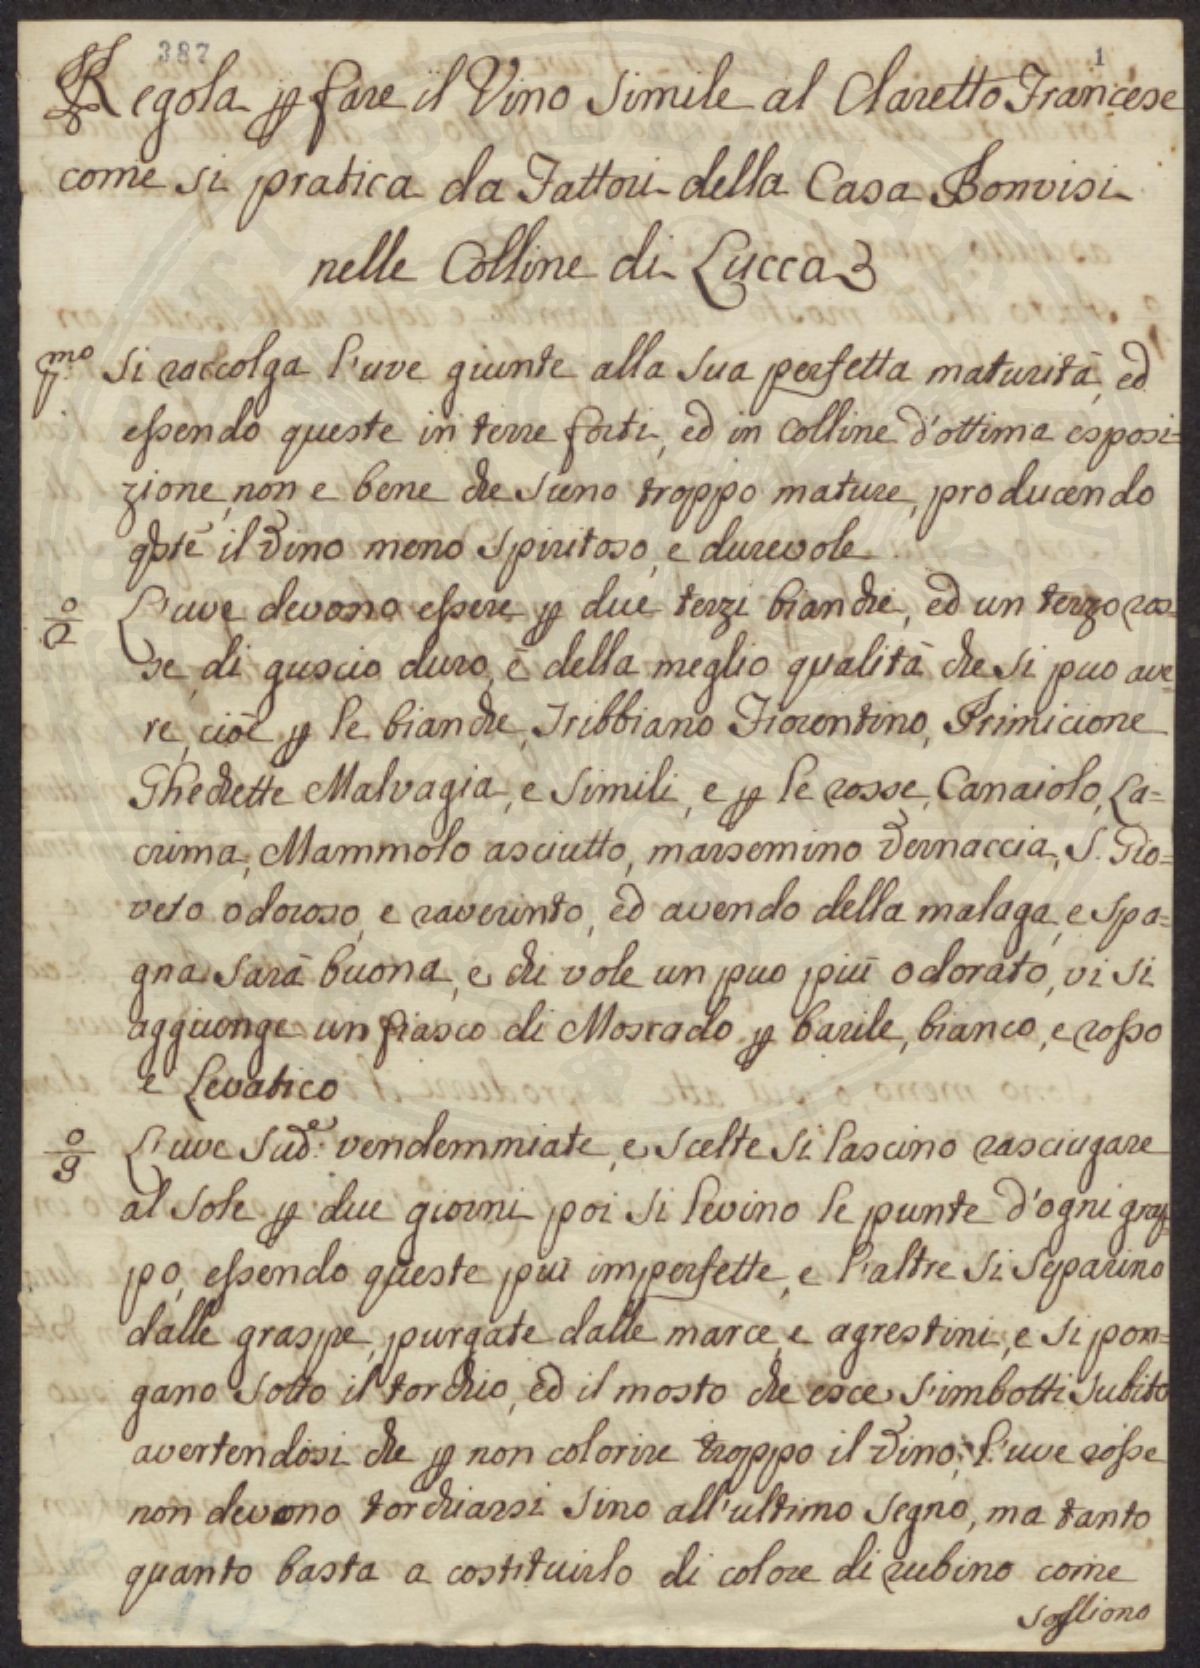 387
1
Regola p fare il Vino Simile al Claretto Francese
come si pratica da Fattori della Casa Bonvisi
nelle Colline di Lucca
p.mo Si raccolga l'uve giunte alla sua perfetta maturità, ed
essendo queste in terre forti, ed in colline d'ottima esposi=
zione, non e bene che sieno troppo mature, producendo
qste il Vino meno spiritoso, e durevole
2.o L'uve devono essere p due terzi bianche, ed un terzo ros=
se, di guscio duro, è della meglio qualità che si puo ave=
re, cioè p le bianche, Tribbiano Fiorentino, Primicione
Ghechette Malvagia, e simili, e p le rosse, Canaiolo, La=
crima, Mammolo asciutto, marsemino Vernaccia, S. Gio=
veto odoroso, e raverinto, ed avendo della malaga, e spa=
gna sarà buona, e chi vole un puo più odorato, vi si
aggiunge un fiasco di Moscado p barile, bianco, e rosso
e Levatico
3.o L'uve sud.e vendemmiate, e scelte si lascino rasciugare
al sole p due giorni poi si levino le punte d'ogni grap=
po, essendo queste più imperfette, e l'altre si separino
dalle graspe, purgate dalle marce, e agrestini, e si pon=
gano sotto il torchio, ed il mosto che esce s'imbotti subito
avertendosi che p non colorire troppo il Vino, l'uve rosse
non devono torchiarsi sino all'ultimo segno, ma tanto
quanto basta a costituirlo di colore di rubino come
sogliono